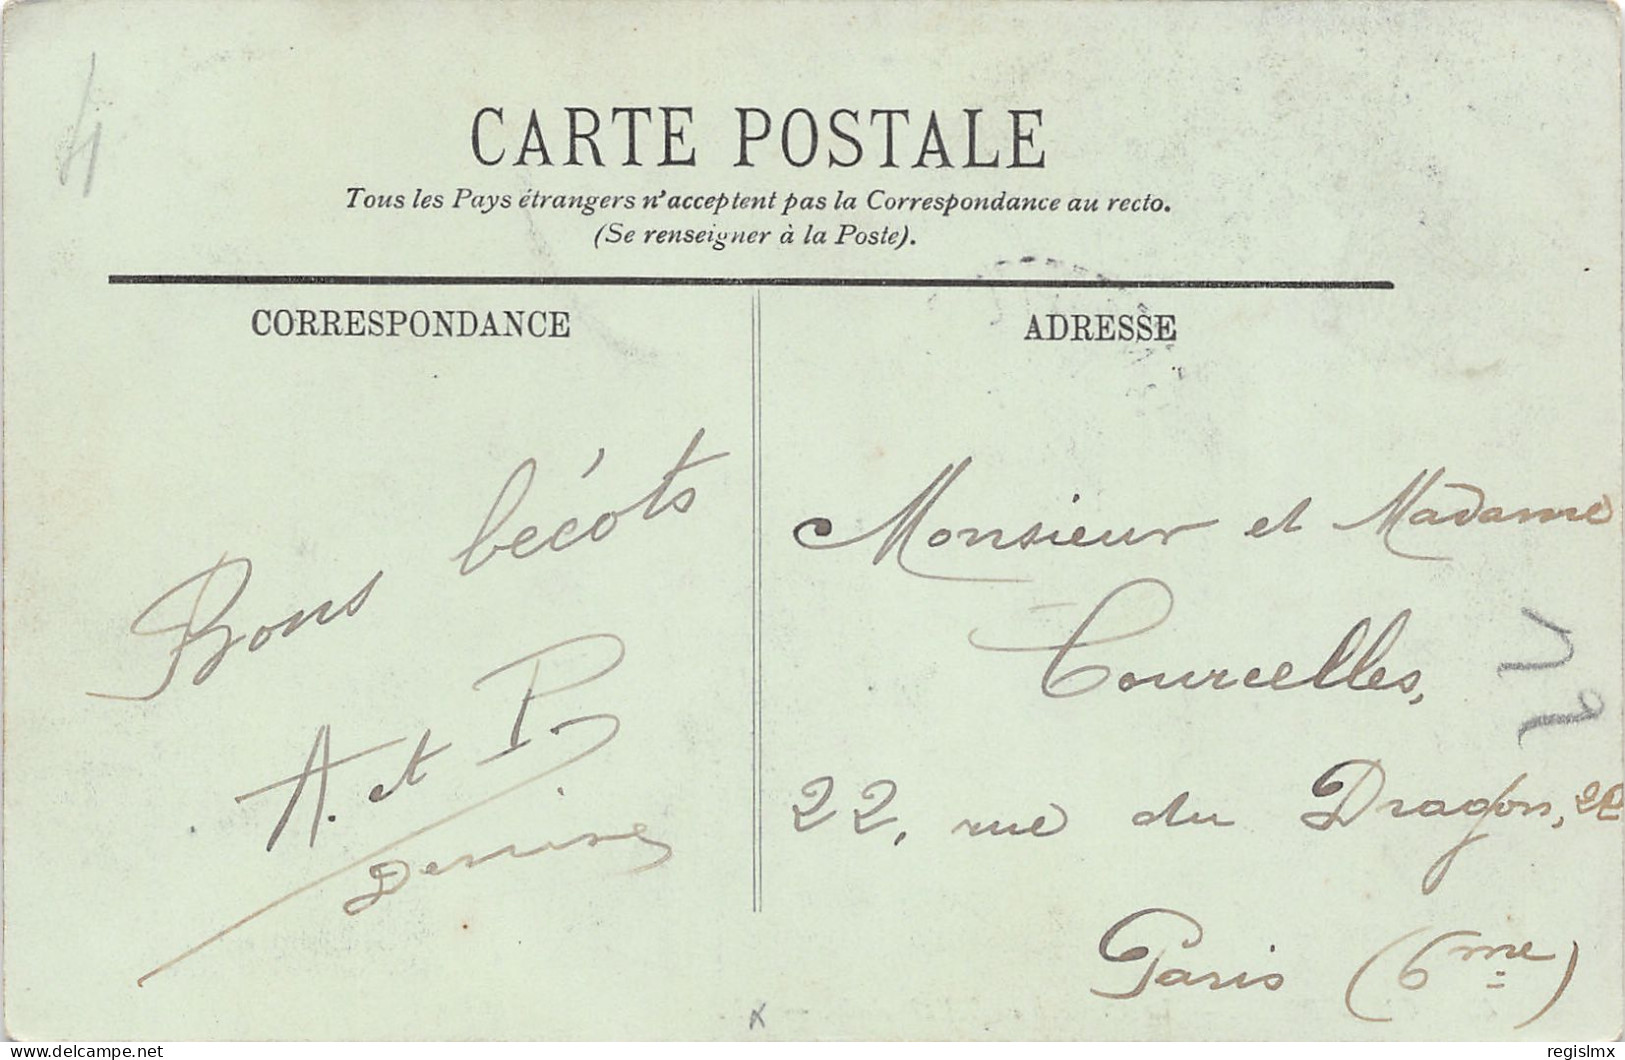 4
CARTE POSTALE
Tous les Pays étrangers n'acceptent pas la Correspondance au recto.
(Se renseigner à la Poste).
CORRESPONDANCE
ADRESSE
Bons bécots
A. et P.
Monsieur et Madame
Courcelles,
22, rue du Dragon, 22
Paris (6me)
x
delcampe.net
regislmx